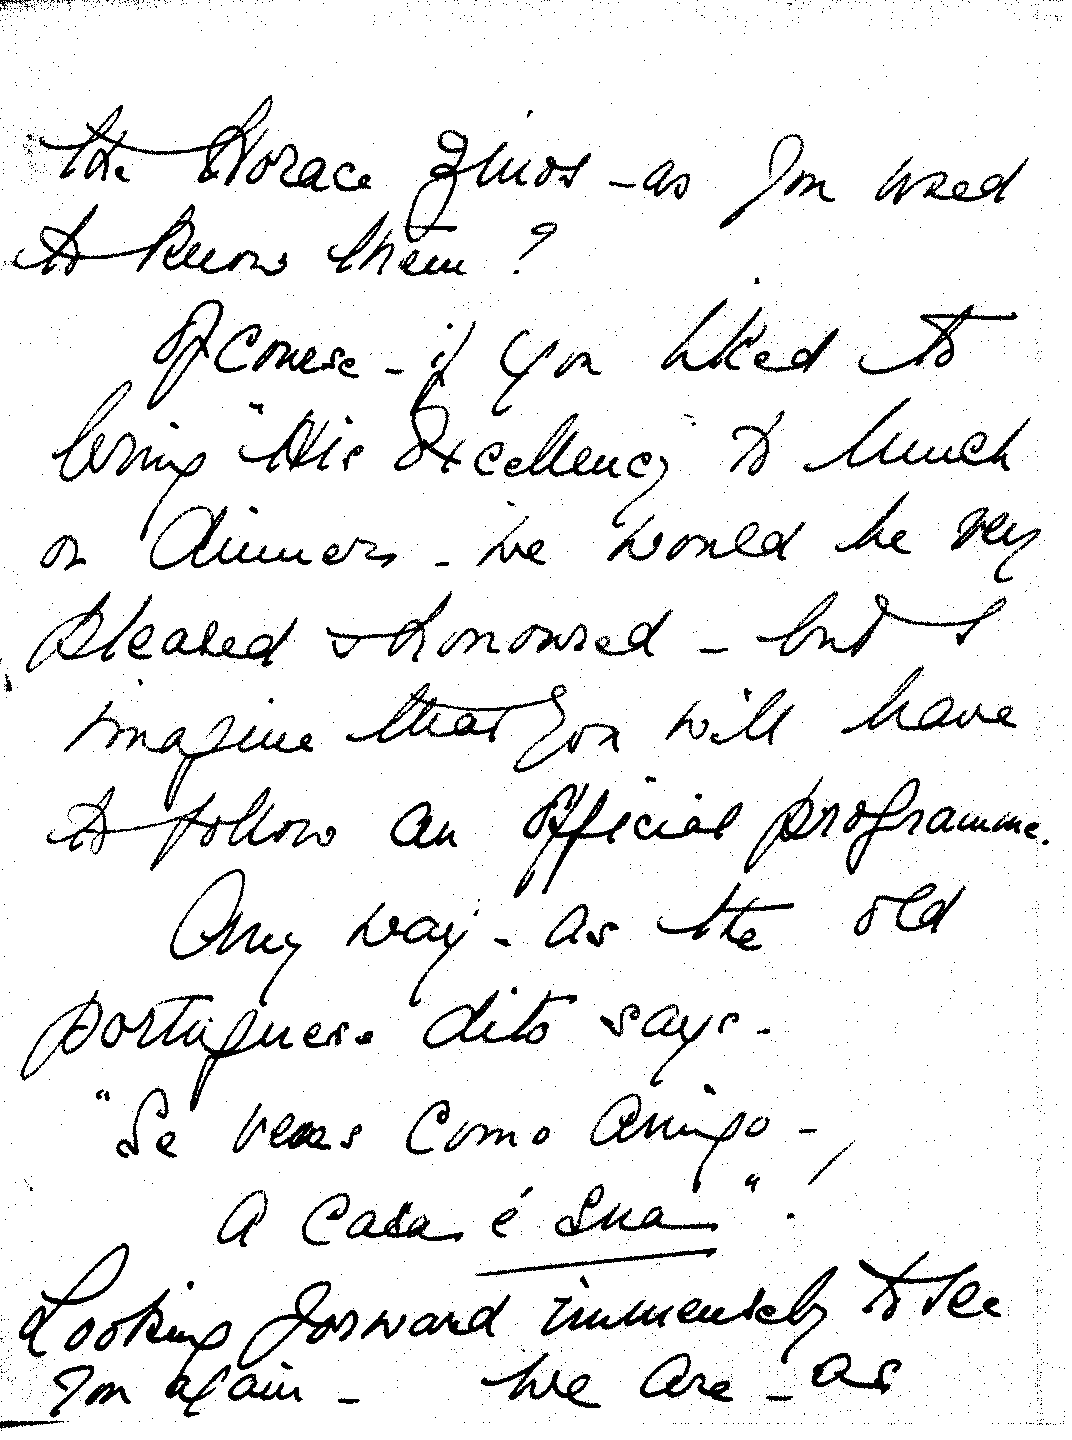 the Horace Zinos - as you used
to know them?
Of course - if you liked to
bring "His Excellency" to lunch
or dinner - we would be very
pleased & honoured - but I
imagine that you will have
to follow an official programme.
Any way - as the old
Portuguese dito says -
"Se vens como Amigo -
A Casa é Sua".
Looking forward immensely to see
you again - We are - as